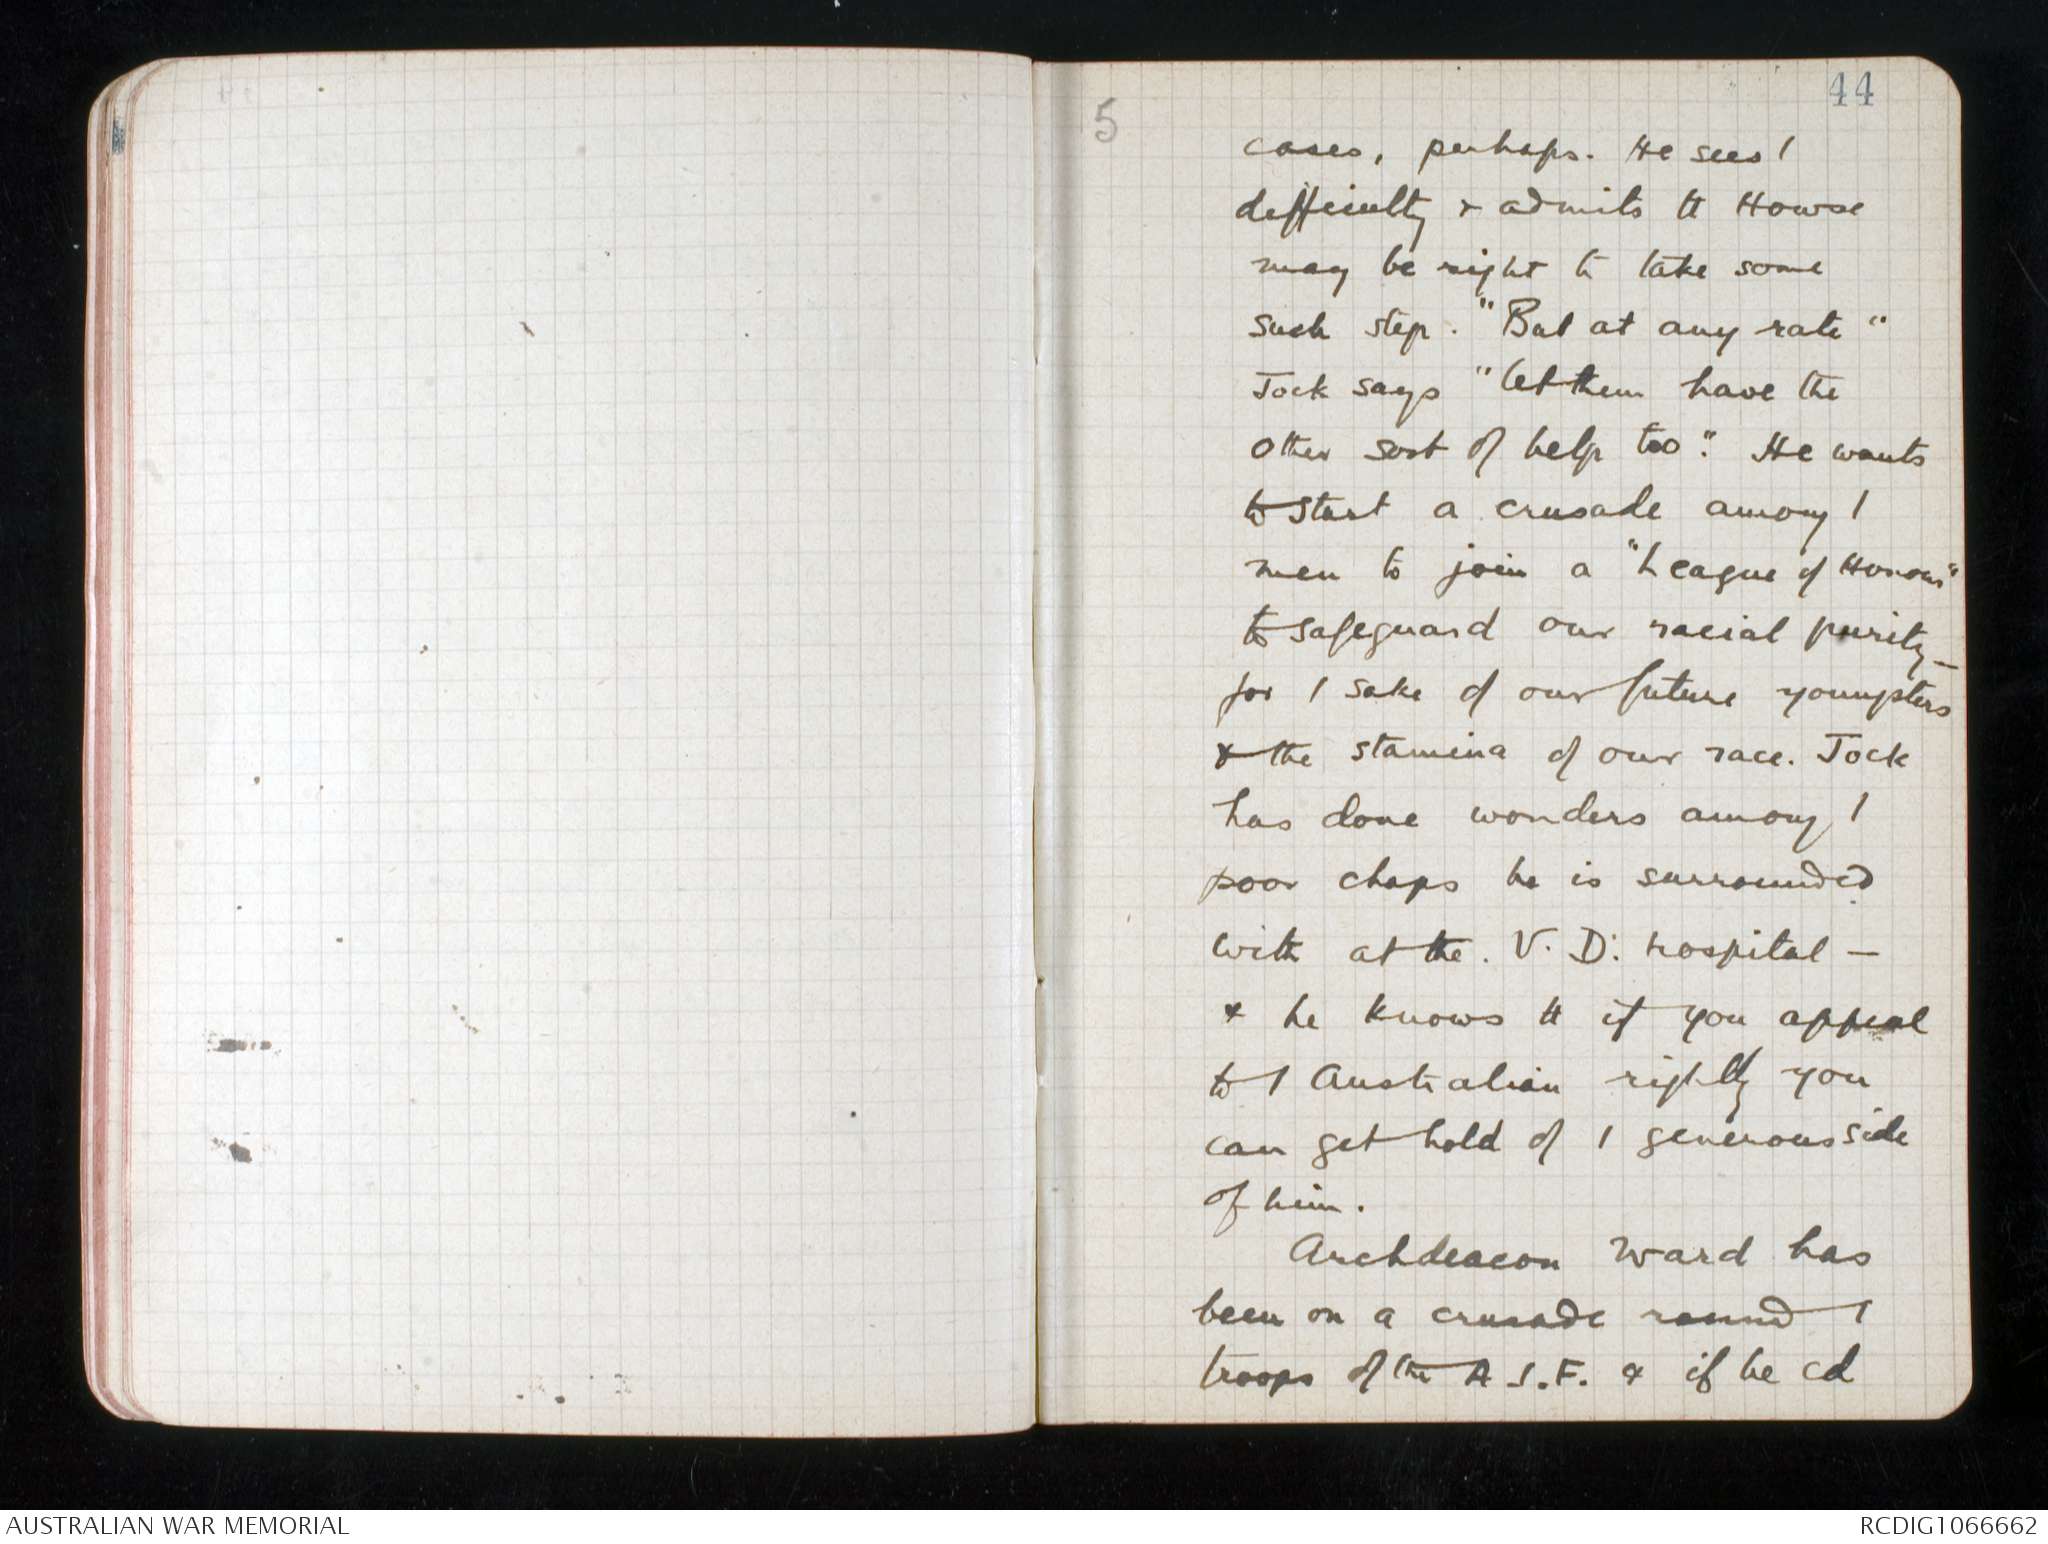 44
5
cases, perhaps. He sees /
difficulty & admits tt Howse
may be right to take some
such step. "But at any rate"
Jock says "let them have the
other sort of help too". He wants
to start a crusade among /
men to join a "League of Honour"
to safeguard our racial purity –
for / sake of our future youngsters
& the stamina of our race. Jock
has done wonders among /
poor chaps he is surrounded
with at the V. D. hospital –
& he knows tt if you appeal
to / Australian rightly you
can get hold of / generous side
of him.
Archdeacon Ward has
been on a crusade round /
troops of the A.I.F. & if he cd
AUSTRALIAN WAR MEMORIAL
RCDIG1066662